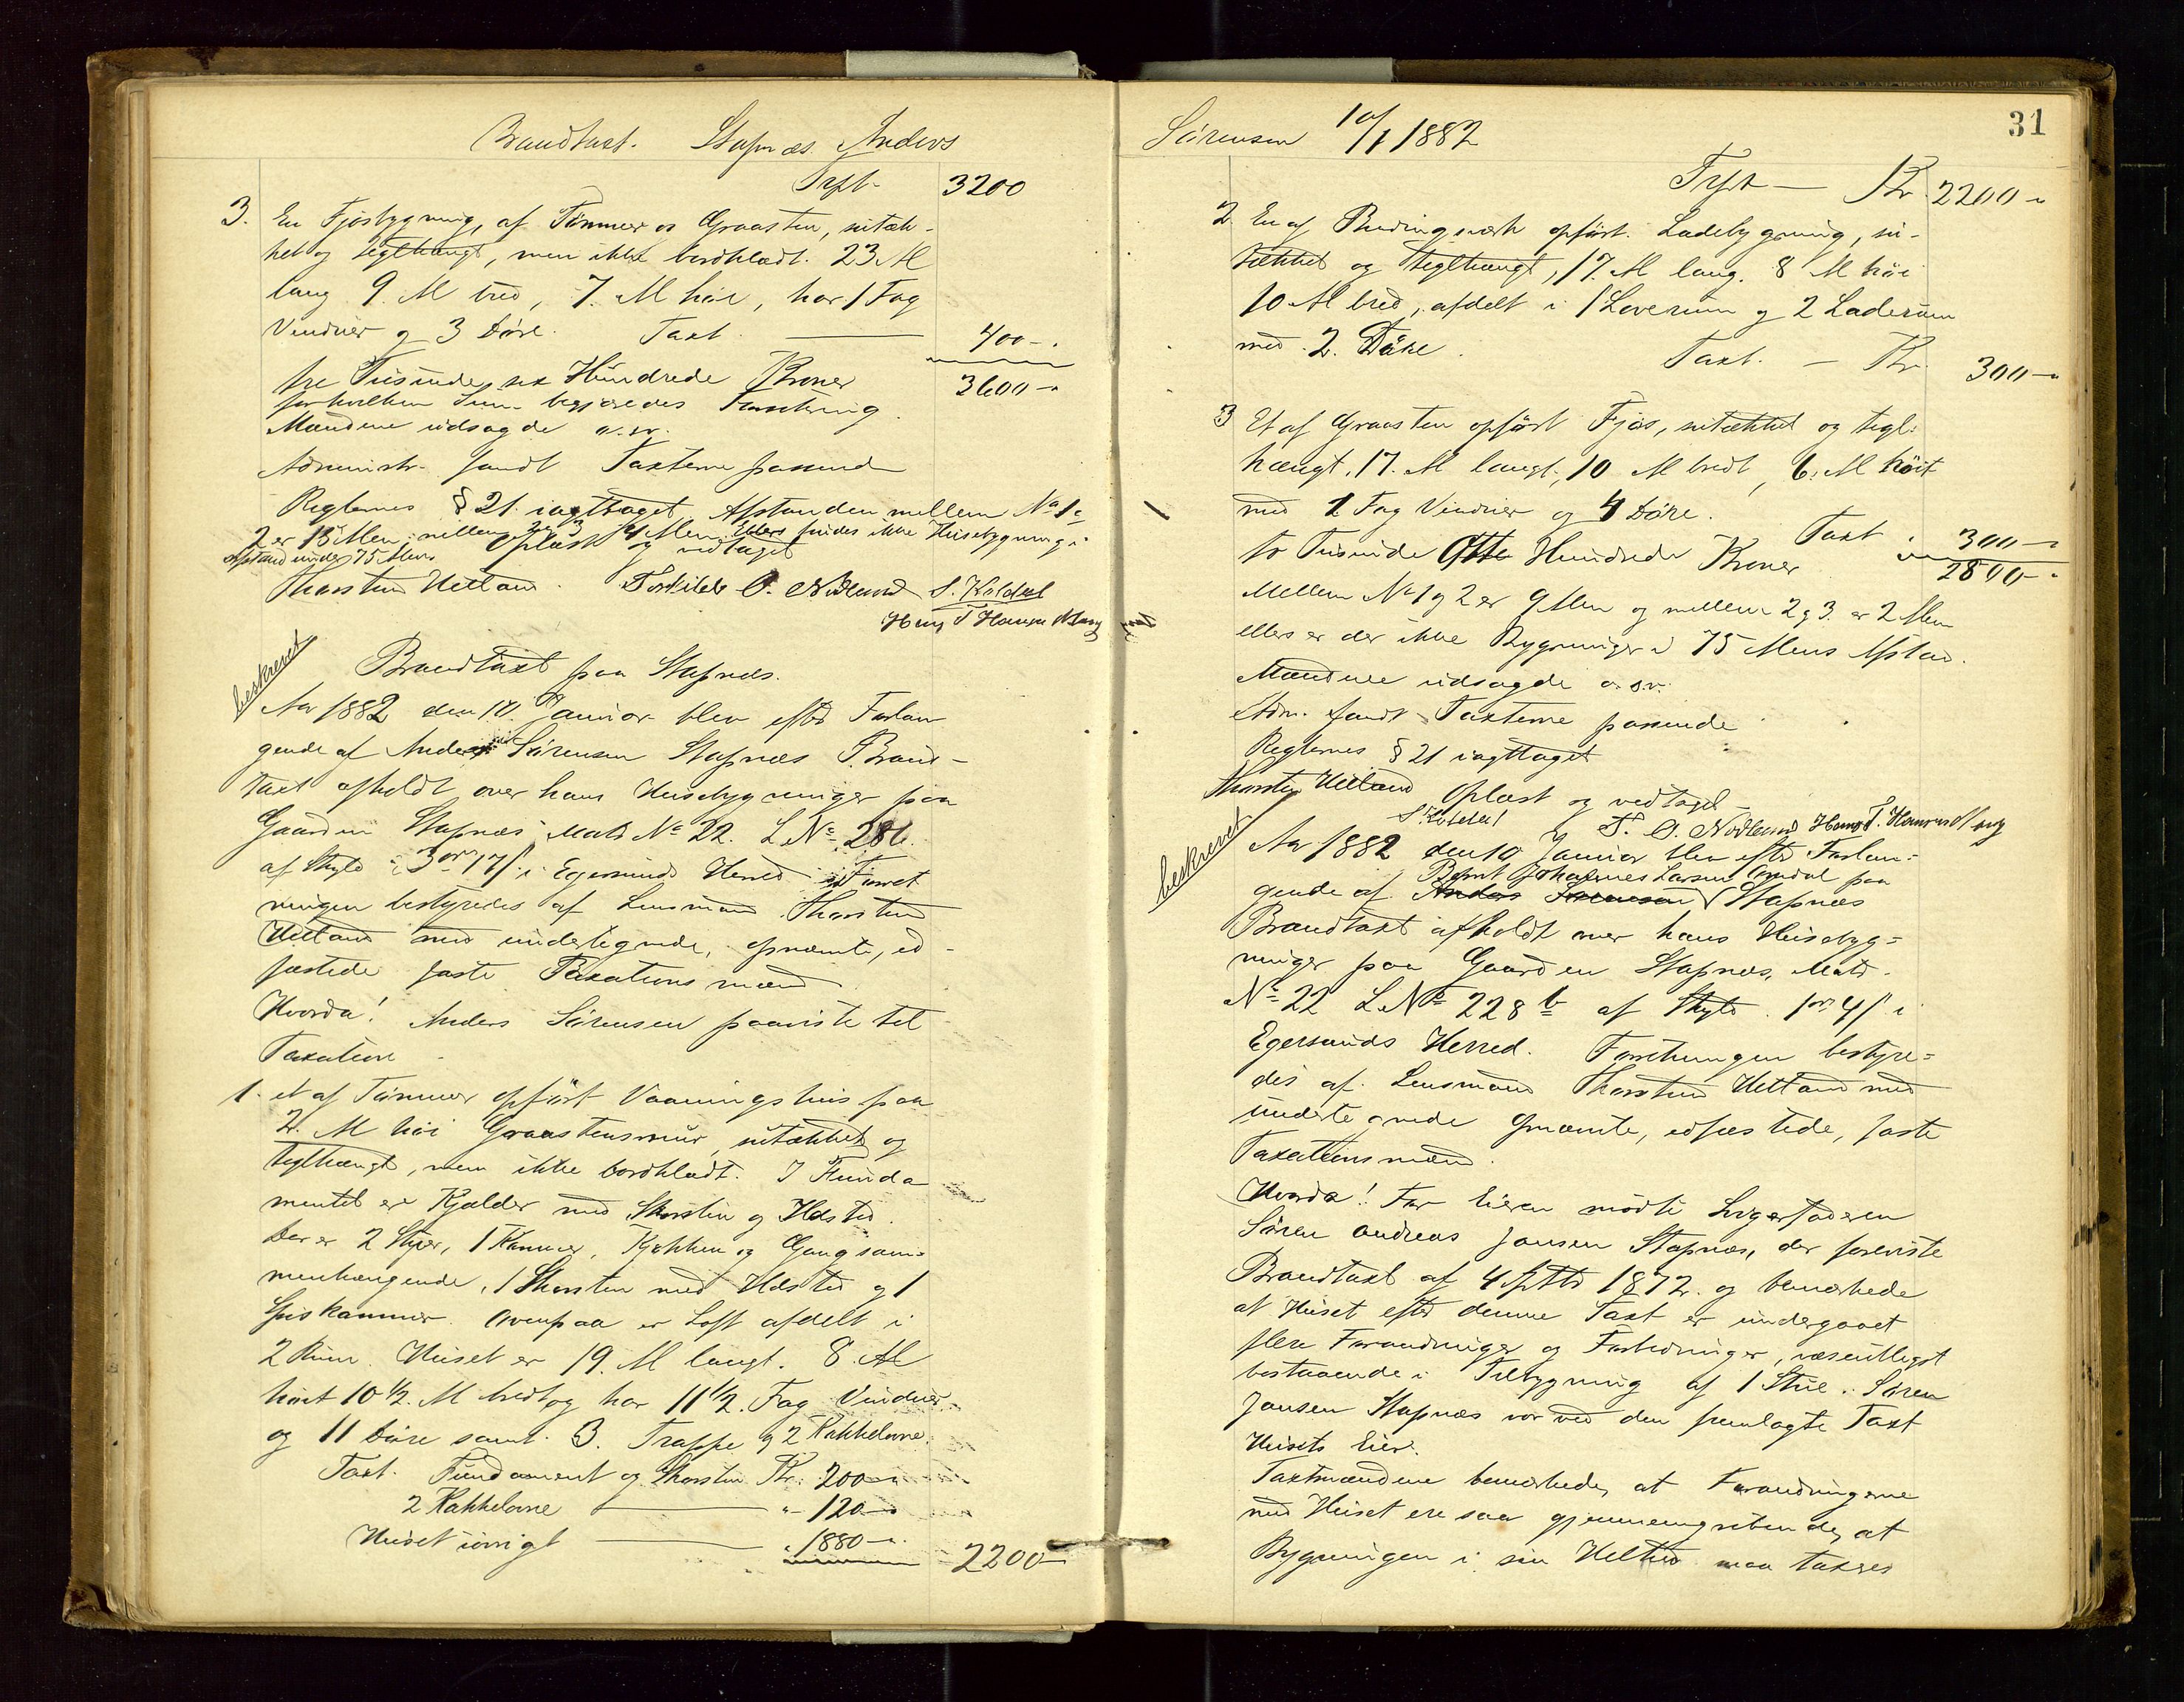 Brandtaxt. Stapnæs. Anders
Trpt. 3200
3. En Fjøsbygning, af Tømmer og Graasten, nitæk-
ket og teglhængt, men ikke bordklædt. 23 Al
lang 9. Al bred, 7. Al høi, har 1 Fag
Vinduer og 3 Døre. Taxt. 400-
tre Tusinde sex Hundrede Kroner 3600-
for hvilken Sum begjæredes Forsikring.
Mændene udsagde o.s.v.
Administr. fandt Taxterne passende
Reglernes § 21. iagttaget. Afstanden mellem No 1 og
2 er 15 Alen, mellem 2 og 3 4 Alen. Ellers findes ikke Husebygning i
Afstand under 75 Alen. Oplæst og vedtaget
Thorsten Hetland. Torkild O. Nodland S.
Hans T Hansen
beskrevet
Brandtaxt paa Stapnæs.
Aar 1882 den 10. Januar blev efter Forlan
gende af Anders Sørensen Stapnæs Brand-
taxt afholdt over hans Husebygninger paa
Gaarden Stapnæs Matr No 22. L No 286.
af Skyld 3 ort 17 s i Egersunds Herred. Forret
ningen bestyredes af Lensmand Thorsten
Hetland med undertegnede, opnævnte, ed-
fæstede faste Taxationsmænd.
Hvorda! Anders Sørensen paaviste til
Taxation -
1. et af Tømmer opført Vaaningshus paa
2. Al høi Graastensmur, nitækket og
teglhængt, men ikke bordklædt. I Funda
mentet er Kjælder med Skorsten og Ildsted.
Der er 2 Stuer, 1 Kammer, Kjøkken og Gang sam-
menhængende, 1 Skorsten med Ildsted og 1
Spiskammer. Ovenpaa er Loft afdelt i
2 Rum. Huset er 19. Al langt. 8. Al
høit 10 1/2. Al bredt og har 11 1/2. Fag Vinduer
og 11 Døre samt 3. Trappe og 2 Kakkelovne.
Taxt. Fundament og Skorsten Kr. 200-
2 Kakkelovne " 120-
Huset iøvrigt " 1880- 2200-
Sørensen 10/1 1882
31
Trpt - Kr 2200-
2. En af Bindingsværk opført Ladebygning, ni-
tækket og teglhængt, 17. Al lang. 8 Al høi
10 Al bred, afdelt i 1 Loverum og 2 Laderum
med 2. Døre. Taxt. - Kr 300-
3 Et af Graasten opført Fjøs, nitækket og tegl-
hængt. 17. Al langt, 10 Al bredt, 6. Al høit
med 1 Fag Vinduer og 4 Døre. Taxt 300-
to Tusinde Otte Hundrede Kroner 2800-
Mellem No 1 og 2 er 9 Alen og mellem 2 og 3. er 2 Alen
ellers er der ikke Bygninger i 75 Alens Afstand.
Mændene udsagde o.s.v.
Adm. fandt Taxterne passende
Reglernes § 21 iagttaget
Oplæst og vedtaget
Thorsten Hetland T. O. Nodland Hans T. Hansen
beskrevet
Aar 1882 den 10 Januar blev efter Forlan-
gende af Anders Sørensen Bernt Johannes Larsen paa Stapnæs
Brandtaxt afholdt over hans Husebyg-
ninger paa Gaarden Stapnæs, Matr.
No 22 L No 228 b af Skyld. 1 ort 4 s i
Egersunds Herred. Forretningen bestyre-
des af Lensmand Thorsten Hetland med
undertegnede opnævnte, edfæstede, faste
Taxationsmænd.
Hvorda! For Eieren mødte Svigerfaderen
Søren Andreas Jansen Stapnæs, der foreviste
Brandtaxt af 4 Septbr 1872. og bemærkede
at Huset efter denne Taxt er undergaaet
flere Forandringer og Forbedringer, væsentligst
bestaaende i Tilbygning af 1 Stue. Søren
Jansen Stapnæs var ved den fremlagte Taxt
Husets Eier.
Taxtmændene bemærkede, at Forandringerne
med Huset ere saa gjennemgribende, at
Bygningen i sin Helhed maa taxeres